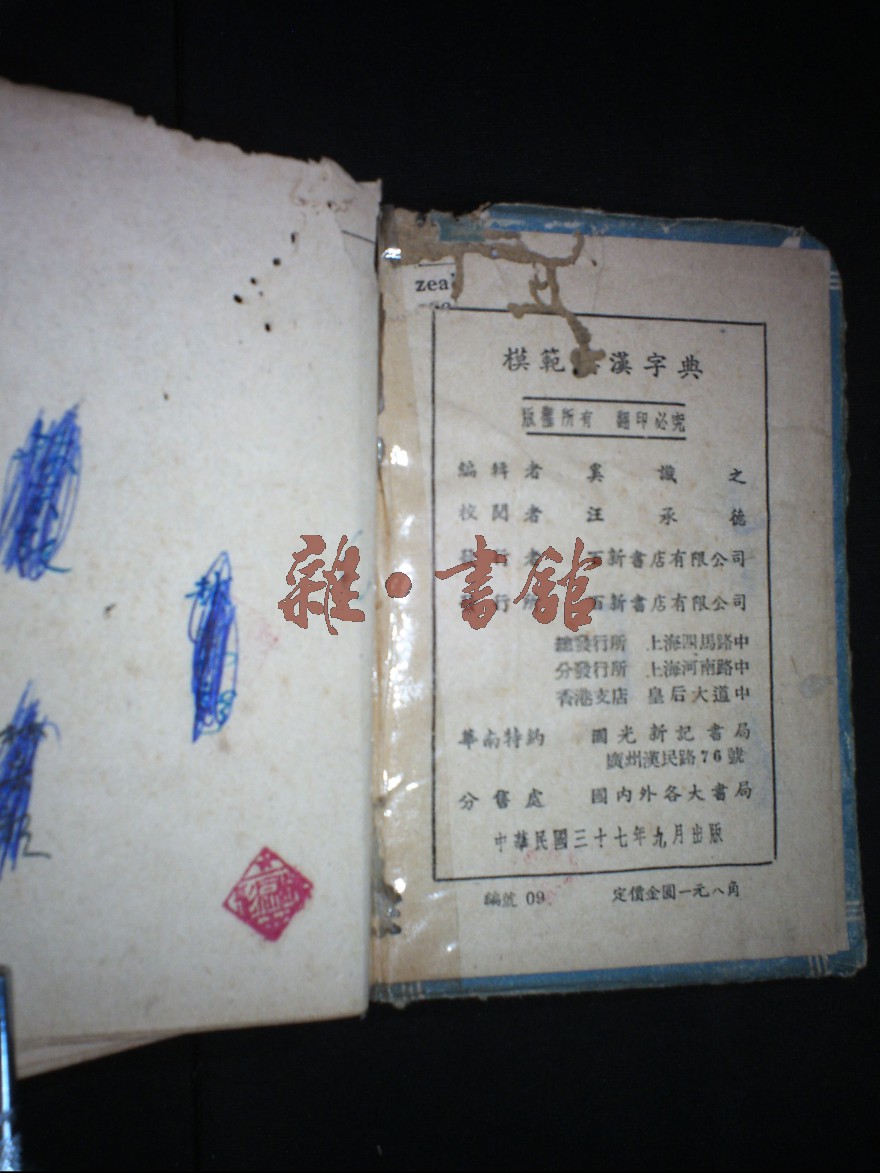 zea
模範 漢字典
版權所有 翻印必究
編輯者 奚識之
校閱者 汪承德
發行者 百新書店有限公司
發行所 百新書店有限公司
總發行所 上海四馬路中
分發行所 上海河南路中
香港支店 皇后大道中
華南特約 國光新記書局
廣州漢民路76號
分售處 國內外各大書局
中華民國三十七年九月出版
編號 09 定價金圓一元八角
雜·書館